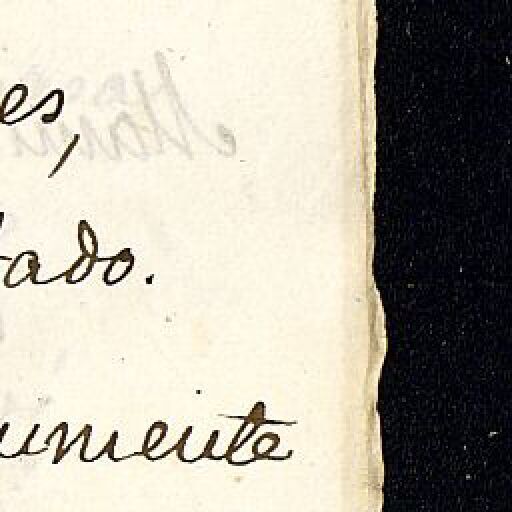 es,
tado.
umente